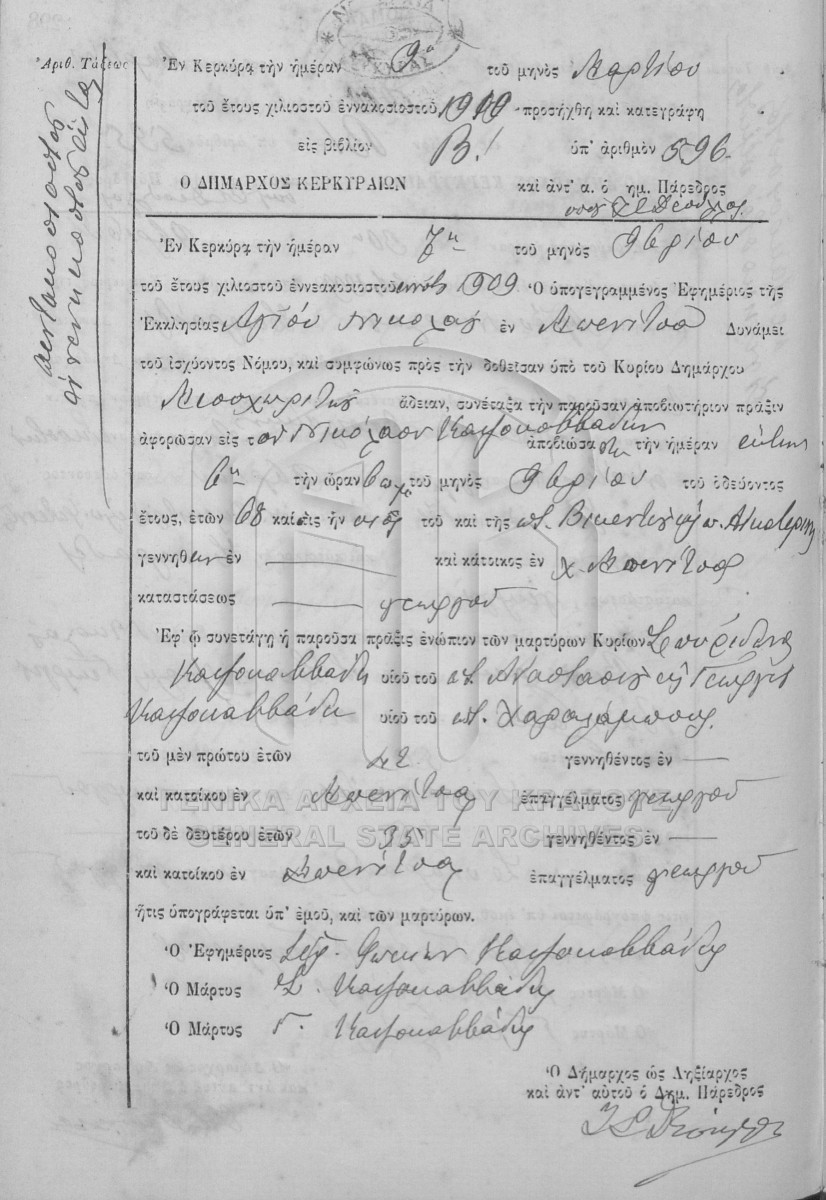 Ἀριθ. Τάξεως
πεντακοσιοστος
ἐνενηκοστος ἑκτος
Ἐν Κερκύρᾳ τὴν ἡμέραν 9ῃ τοῦ μηνὸς Μαρτίου
τοῦ ἔτους χιλιοστοῦ ἐννακοσιοστοῦ 1910 προσήχθη καὶ κατεγράφη
εἰς βιβλίον Β! ὑπ' ἀριθμὸν 596
Ὁ ΔΗΜΑΡΧΟΣ ΚΕΡΚΥΡΑΙΩΝ καὶ ἀντ' α. ὁ δημ. Πάρεδρος
Ἐν Κερκύρᾳ τὴν ἡμέραν 7ῃ τοῦ μηνὸς 9βρίου
τοῦ ἔτους χιλιοστοῦ ἐννεακοσιοστοῦ 1909 Ὁ ὑπογεγραμμένος Ἐφημέριος τῆς
Ἐκκλησίας Ἁγίου Νικολάου ἐν Μπενίτσα Δυνάμει
τοῦ ἰσχύοντος Νόμου, καὶ συμφώνως πρὸς τὴν δοθεῖσαν ὑπὸ τοῦ Κυρίου Δημάρχου
Μεσοχωριτῶν ἄδειαν, συνέταξα τὴν παροῦσαν ἀποβιωτήριον πρᾶξιν
ἀφορῶσαν εἰς τὸν Νικόλαον Καψοκαββάδην ἀποβιώσαντα τὴν ἡμέραν
6ῃ τὴν ὥραν τοῦ μηνὸς 9βρίου τοῦ ὁδεύοντος
ἔτους, ἐτῶν 68 καὶ εἰς ἣν υἱὸς τοῦ καὶ τῆς Βικεντίου Αἰκατερίνης
γεννηθεὶς ἐν — καὶ κάτοικος ἐν χ. Μπενίτσα
καταστάσεως — γεωργοῦ
Ἐφ' ᾧ συνετάγη ἡ παροῦσα πρᾶξις ἐνώπιον τῶν μαρτύρων Κυρίων Σπυρίδωνα
Καψοκαββάδη υἱοῦ τοῦ ποτ. Ἀναστασίου καὶ Γεωργίου
Καψοκαββάδη υἱοῦ τοῦ ποτ. Χαραλάμπους
τοῦ μὲν πρώτου ἐτῶν 42 γεννηθέντος ἐν —
καὶ κατοίκου ἐν Μπενίτσα ἐπαγγέλματος γεωργοῦ
τοῦ δὲ δευτέρου ἐτῶν 35 γεννηθέντος ἐν —
καὶ κατοίκου ἐν Μπενίτσα ἐπαγγέλματος γεωργοῦ
ἥτις ὑπογράφεται ὑπ' ἐμοῦ, καὶ τῶν μαρτύρων.
Ὁ Ἐφημέριος Φωκίων Καψοκαββάδης
Ὁ Μάρτυς Σ. Καψοκαββάδης
Ὁ Μάρτυς Γ. Καψοκαββάδης
Ὁ Δήμαρχος ὡς Ληξίαρχος
καὶ ἀντ' αὐτοῦ ὁ Δημ. Πάρεδρος
ΓΕΝΙΚΑ ΑΡΧΕΙΑ ΤΟΥ ΚΡΑΤΟΥΣ
GENERAL STATE ARCHIVES